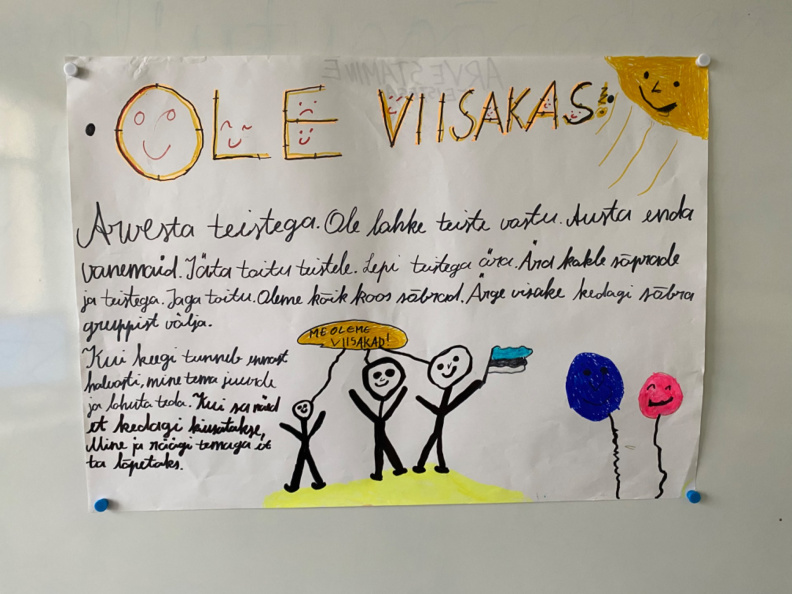 ARVESTAMINE
OLE VIISAKAS!
Arvesta teistega. Ole lahke teiste vastu. Austa enda
vanemaid. Jäta toitu teistele. Lepi teistega ära. Ära kakle sõprade
ja teistega. Jaga toitu. Oleme kõik koos sõbrad. Ärge visake kedagi sõbra
gruppist välja.
Kui keegi tunneb ennast
halvasti, mine tema juurde
ja lohuta teda. Kui sa näid
et kedagi kiusatakse,
Mine ja räägi temaga et
ta lõpetaks.
ME OLEME
VIISAKAD!